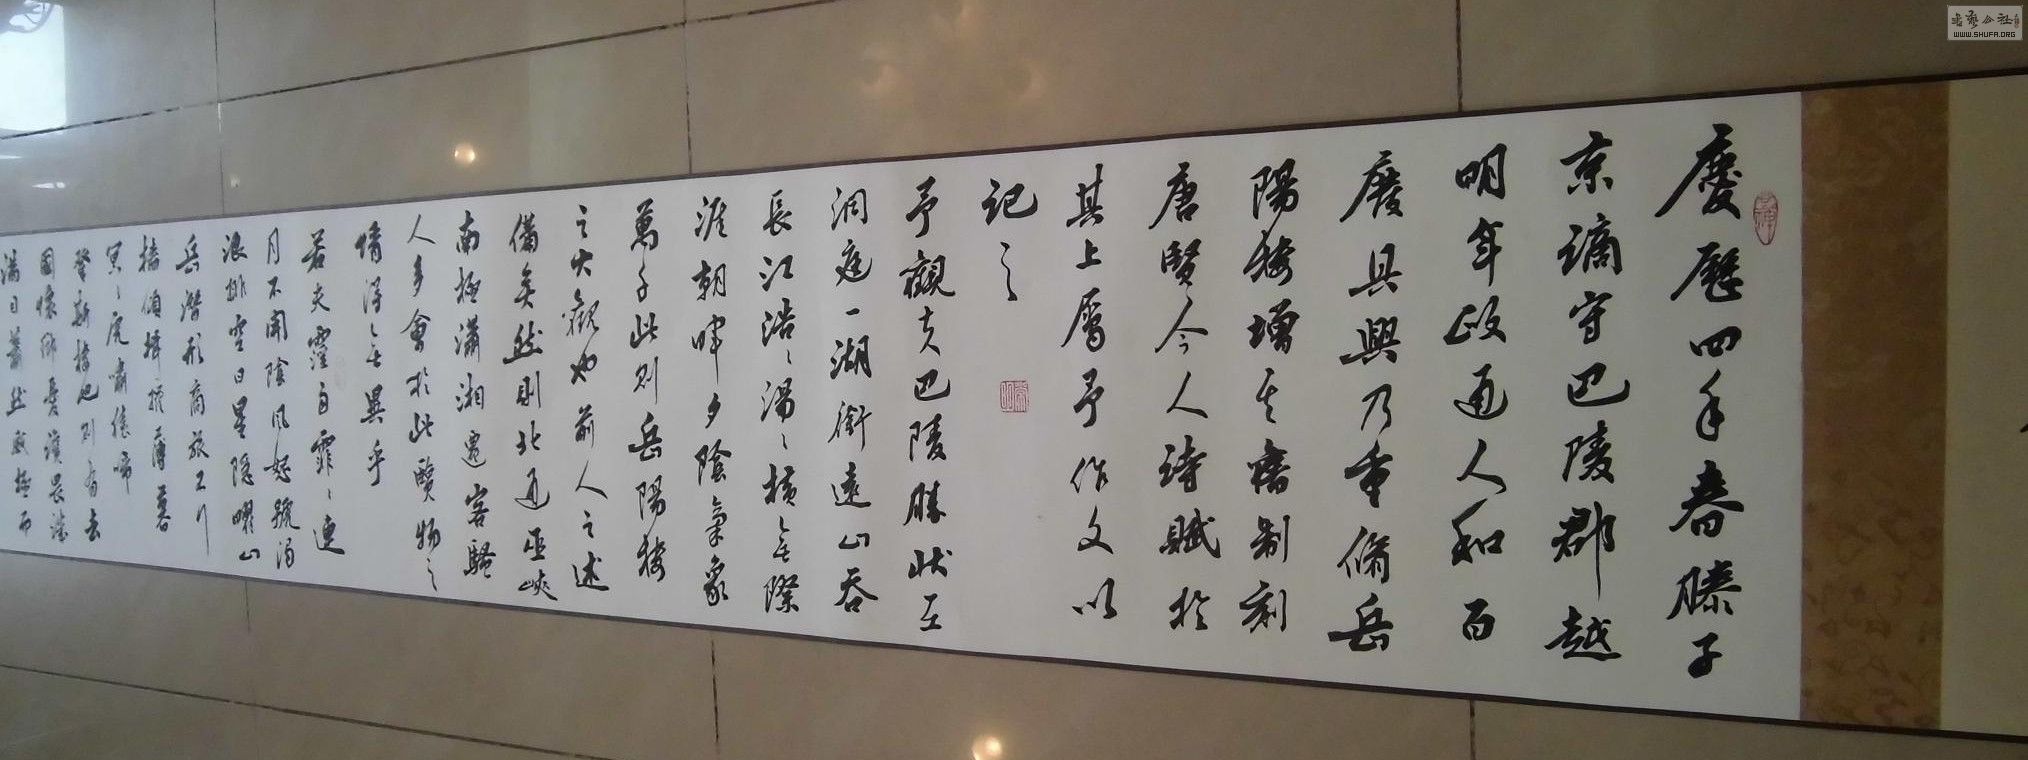 慶曆四年春滕子
京謫守巴陵郡越
明年政通人和百
廢具興乃重脩岳
陽楼增其舊制刻
唐賢今人詩賦於
其上屬予作文以
記之
予觀夫巴陵勝狀在
洞庭一湖銜遠山吞
長江浩〻湯〻橫無際
涯朝暉夕陰氣象
萬千此則岳陽楼
之大觀也前人之述
備矣然則北通巫峽
南極瀟湘遷客騷
人多會於此覽物之
情得無異乎
若夫霪雨霏〻連
月不開陰風怒號濁
浪排空日星隱曜山
岳潛形商旅不行
檣傾楫摧薄暮
冥〻虎嘯猿啼
登斯楼也則有去
國懷鄉憂讒畏譏
滿目蕭然感極而
書藝公社
WWW.SHUFA.ORG